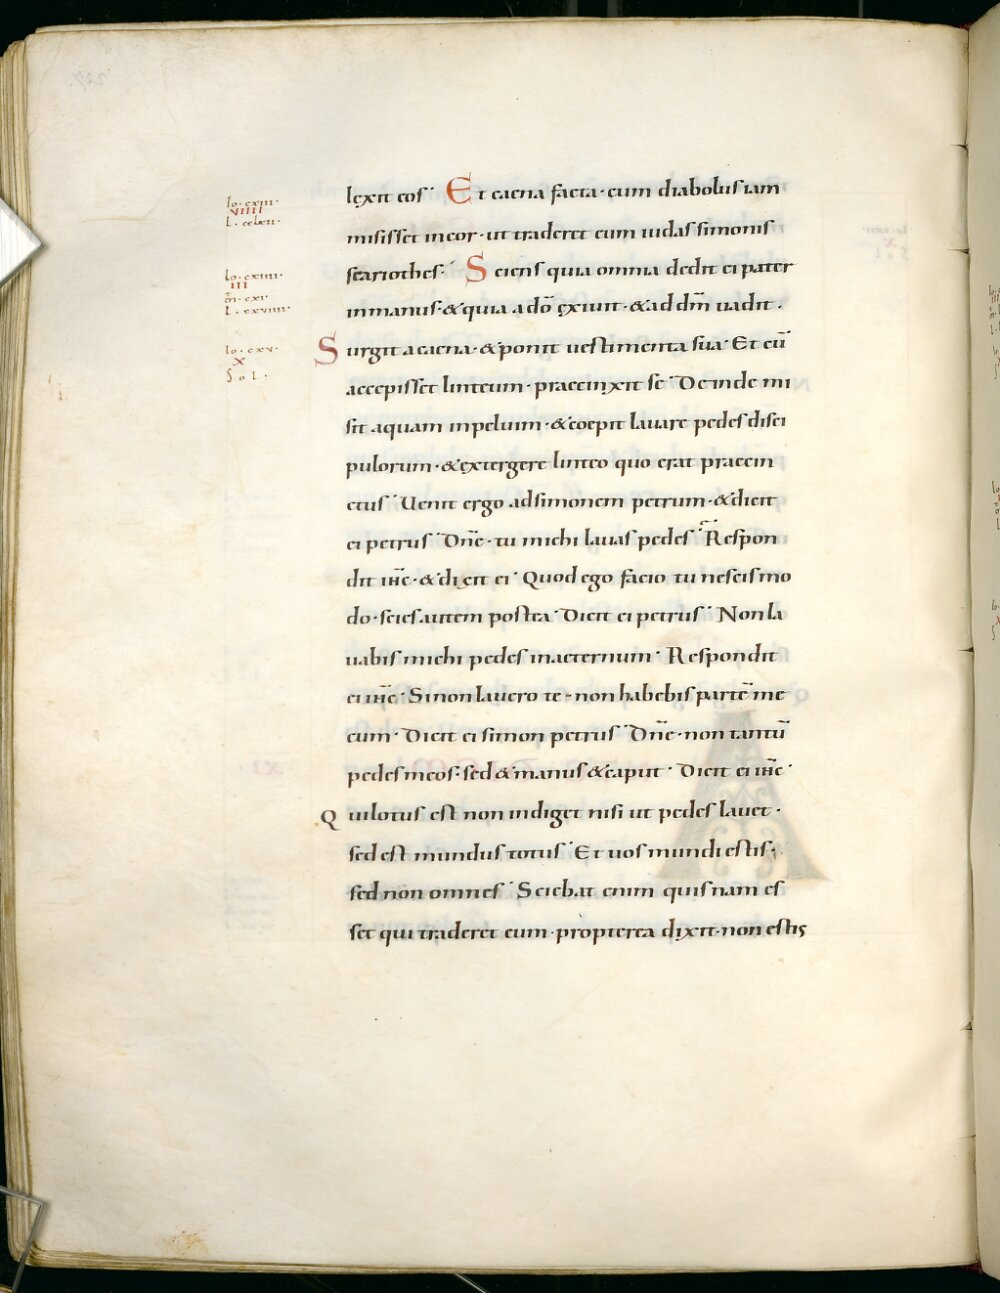 lo · cxiii ·
VIIII
L · cclxii ·
lo · cxiiii ·
III
m̄ · cxv ·
L · cxviiii ·
lo · cxv ·
X
Sol ·
lęxit eos · Et caena facta · cum diabolus iam
misisset incor · ut traderet eum iudas simonis
scariothes · Sciens quia omnia dedit ei pater
inmanus · & quia a dō exiuit · & ad dm̄ uadit ·
Surgit a caena · & ponit uestimenta sua · Et cū
accepisset linteum · praecinxit se · Deinde mi
sit aquam inpeluim · & coepit lauare pedes disci
pulorum · & extergere linteo quo erat praecin
ctus · Uenit ergo adsimonem petrum · & dicit
ei petrus · Dn̄e · tu michi lauas pedes · Respon
dit ih̄c · & dixit ei · Quod ego facio tu nescis mo
do · scies autem postea · Dicit ei petrus · Non la
uabis michi pedes inaeternum · Respondit
ei ih̄c · Sinon lauero te · non habebis partē me
cum · Dicit ei simon petrus · Dn̄e · non tantū
pedes meos · sed & manus & caput · Dicit ei ih̄c ·
Qui lotus est non indiget nisi ut pedes lauet ·
sed est mundus totus · Et uos mundi estis ·
sed non omnes · Sciebat enim quisnam es
set qui traderet eum · propterea dixit · non estis